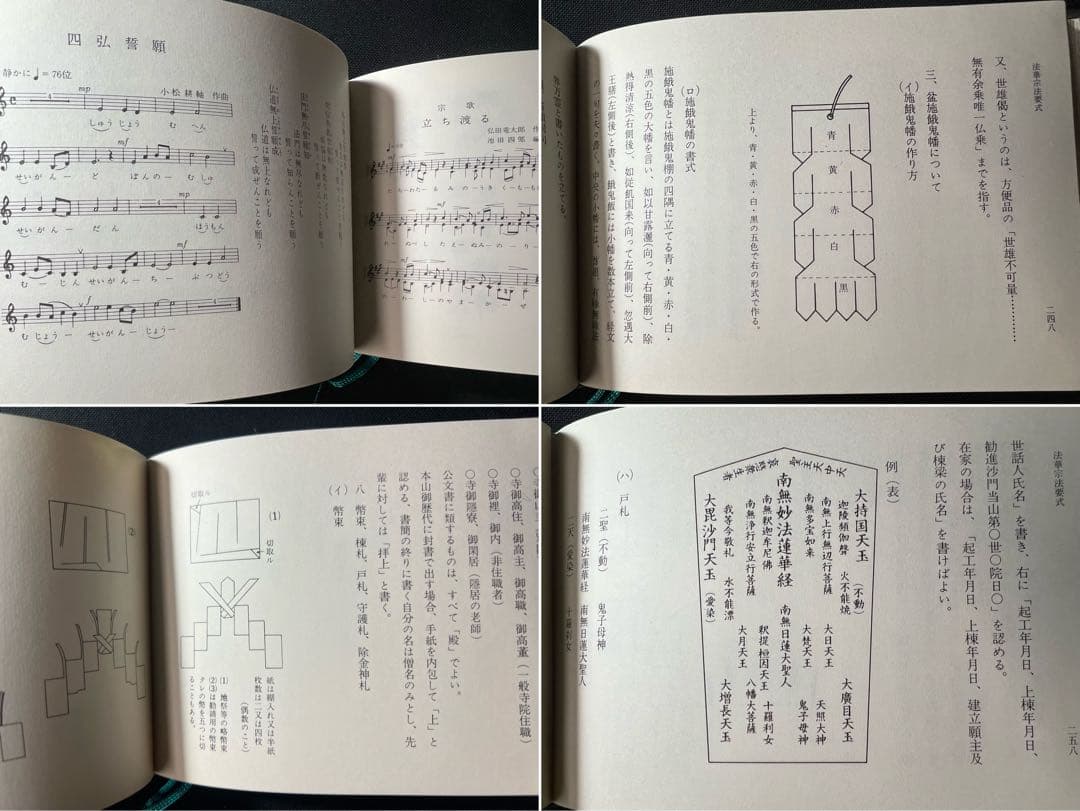 四弘誓願
静かに♩=76位
小松耕軸 作曲
mp
しゅうじょう む へん
mf
せいがん ど ぼんのー むしゅ
せいがんー だん ほうもん
mf
むーじん せいがんーちー ぶつどう
f
むじょうー せいがんーじょうー
法門は無尽なれども
誓って知らんことを願う
仏道無上誓願成
仏道は無上なれども
誓って成ぜんことを願う
宗歌
立ち渡る
弘田竜太郎 作
池田四郎 編
法華宗法要式
二四八
又、世雄偈というのは、方便品の「世雄不可量…………
無有余乗唯一仏乗」までを指す。
三、盆施餓鬼幡について
(イ)施餓鬼幡の作り方
青
黄
赤
白
黒
上より、青・黄・赤・白・黒の五色で右の形式で作る。
(ロ)施餓鬼幡の書式
施餓鬼幡とは施餓鬼棚の四隅に立てる青・黄・赤・白・
黒の五色の大幡を言い、如以甘露灑(向って右側前)、除
熱得清涼(右側後)、如従飢国来(向って左側前)、忽遇大
王膳(左側後)と書き、餓鬼飯には小幡を数本立て、経文
○寺御高住、御高主、御高職、御高董(一般寺院住職)
○寺御裡、御内(非住職者)
○寺御隠寮、御閑居(隠居の老師)
公文書に類するものは、すべて「殿」でよい。
本山御歴代に封書で出す場合、手紙を内包して「上」と
認める、書簡の終りに書く自分の名は僧名のみとし、先
輩に対しては「拝上」と書く。
八 幣束、棟札、戸札、守護札、除金神札
(イ) 幣束
(1)
切取ル
切取ル
紙は糊入れ又は半紙
枚数は二又は四枚
(偶数のこと)
(1) 地祭等の略幣束
(2)(3)は勧請用の幣束
タレの幣を五つに切
ることもある。
(2)
法華宗法要式
二五八
世話人氏名」を書き、右に「起工年月日、上棟年月日、
勧進沙門当山第〇世〇院日〇」を認める。
在家の場合は、「起工年月日、上棟年月日、建立願主及
び棟梁の氏名」を書けばよい。
例(表)
大持国天玉 (不動) 大廣目天玉
迦陵頻伽聲 火不能燒
南無上行無辺行菩薩 大日天玉 天照大神
南無多宝如来 大梵天玉 鬼子母神
南無妙法蓮華経 南無日蓮大聖人
南無釈迦牟尼佛 釈提桓因天玉 十羅刹女
南無浄行安立行菩薩 大月天玉 八幡大菩薩
我等今敬礼 水不能漂
大毘沙門天玉 (愛染) 大増長天玉
(ハ) 戸札
二聖(不動) 鬼子母神
南無妙法蓮華経 南無日蓮大聖人
二天(愛染) 十羅刹女